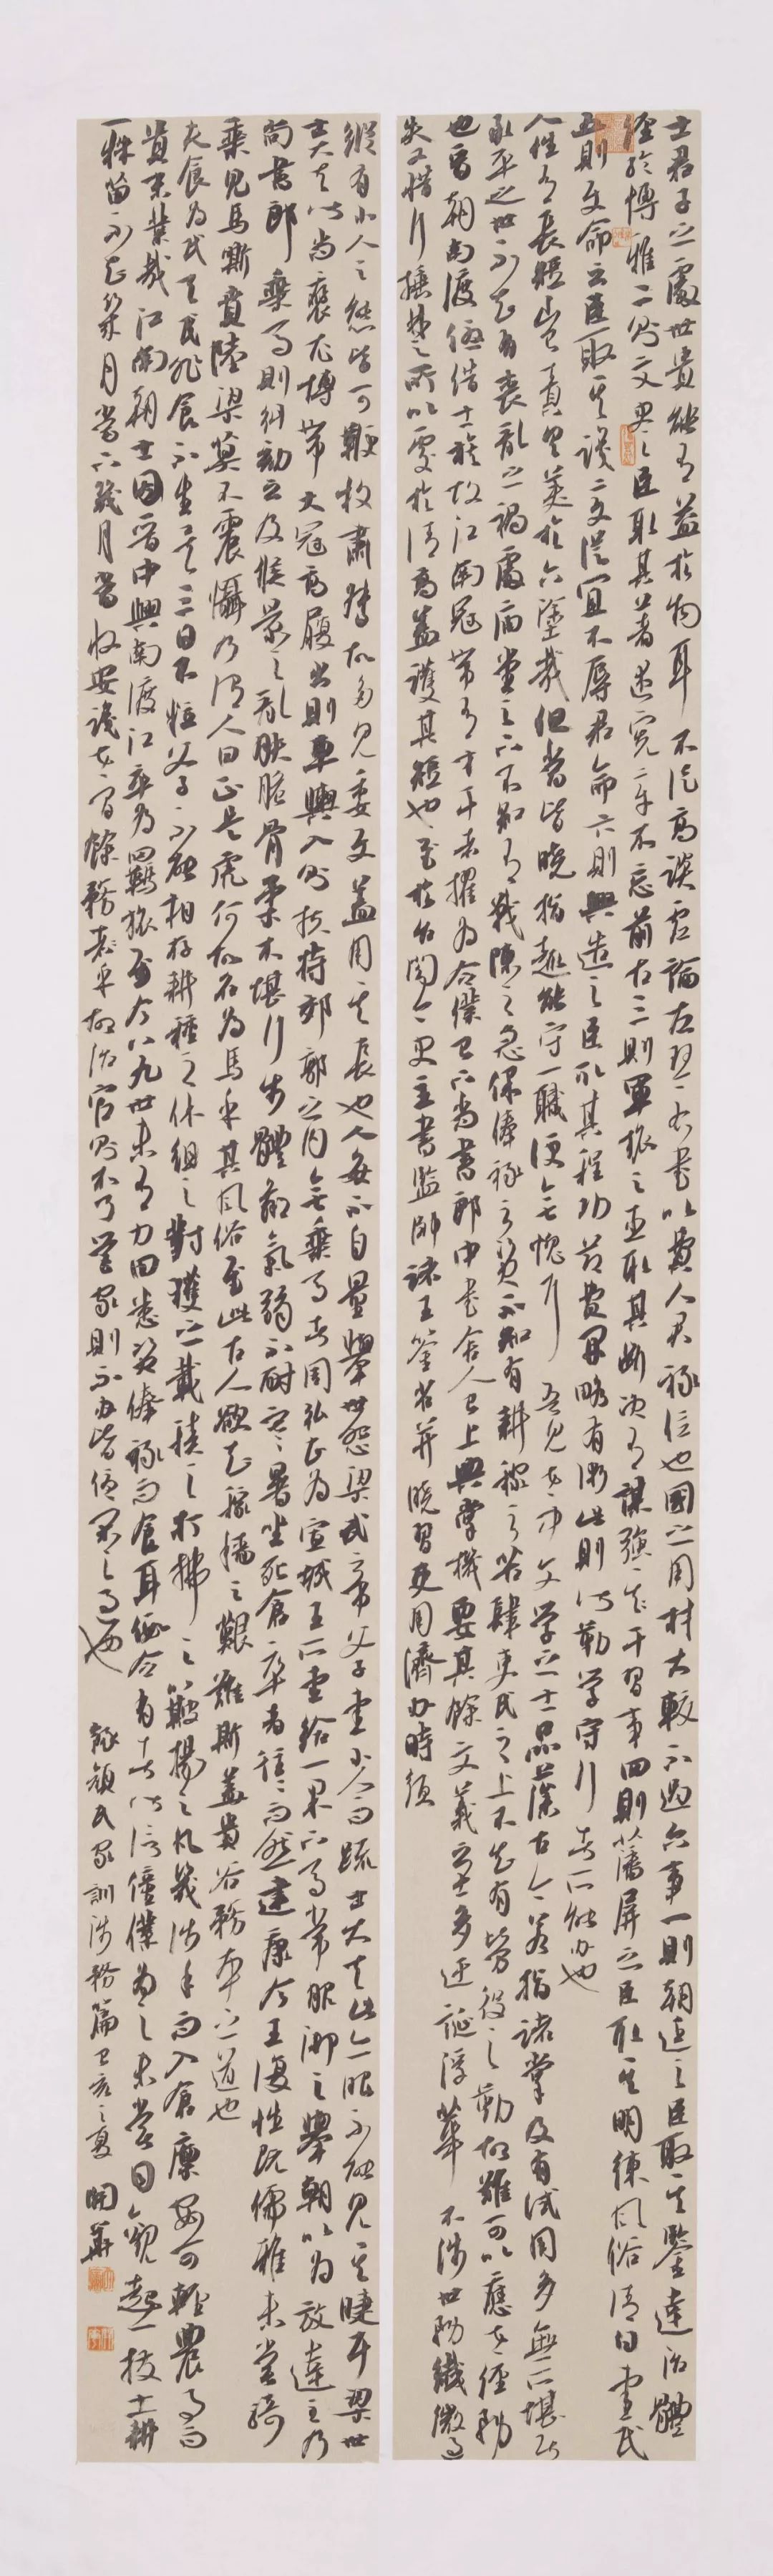 士君子之處世貴能有益於物耳不徒高談虛論左琴右書以費人君祿位也國之用材大較不過六事一則朝廷之臣取其鑒達治體
經綸博雅二則文史之臣取其著述憲章不忘前古三則軍旅之臣取其斷決有謀強幹習事四則藩屏之臣取其明練風俗清白愛民
五則使命之臣取其識變從宜不辱君命六則興造之臣取其程功節費開略有術此則皆勤學守行者所能辦也
人性有長短豈責具美於六塗哉但當皆曉指趣能守一職便無愧耳 吾見世中文學之士品藻古今若指諸掌及有試用多無所堪居
承平之世不知有喪亂之禍處廟堂之下不知有戰陳之急保俸祿之資不知有耕稼之苦肆吏民之上不知有勞役之勤故難可以應世經務
也晉朝南渡優借士族故江南冠帶有才幹者擢為令僕已下尚書郎中書舍人已上典掌機要其餘文義之士多迂誕浮華不涉世務纖微過
失又惜行捶楚所以處於清高蓋護其短也至於台閣令史主書監帥諸王籤省並曉習吏用濟辦時須
縱有小人之態皆可鞭杖肅督故多見委使蓋用其長也人每不自量舉世怨梁武帝父子愛小人而疏士大夫此亦眼不能見其睫耳梁世
士大夫皆尚褒衣博帶大冠高履出則車輿入則扶持郊郭之內無乘馬者周弘正為宣城王所愛給一果下馬常服御之舉朝以為放達至乃
尚書郎乘馬則糾劾之及侯景之亂膚脆骨柔不堪行步體羸氣弱不耐寒暑坐死倉猝者往往而然建康令王復性既儒雅未嘗騎
乘見馬嘶賁陸梁莫不震懾乃謂人曰正是虎何故名為馬乎其風俗至此古人欲知稼穡之艱難斯蓋貴谷務本之道也
夫食為民天民非食不生矣三日不粒父子不能相存耕種之茠鉏之刈獲之載積之打拂之簸揚之凡幾涉手而入倉廩安可輕農事而
貴末業哉江南朝士因晉中興南渡江卒為羈旅至今八九世未有力田悉資俸祿而食耳假令有者皆信僮僕為之未嘗目觀起一拔土耕
一株苗不知幾月當下幾月當收安識世間餘務乎故治官則不了營家則不辦皆優閑之過也 錄顏氏家訓涉務篇己亥之夏 開華